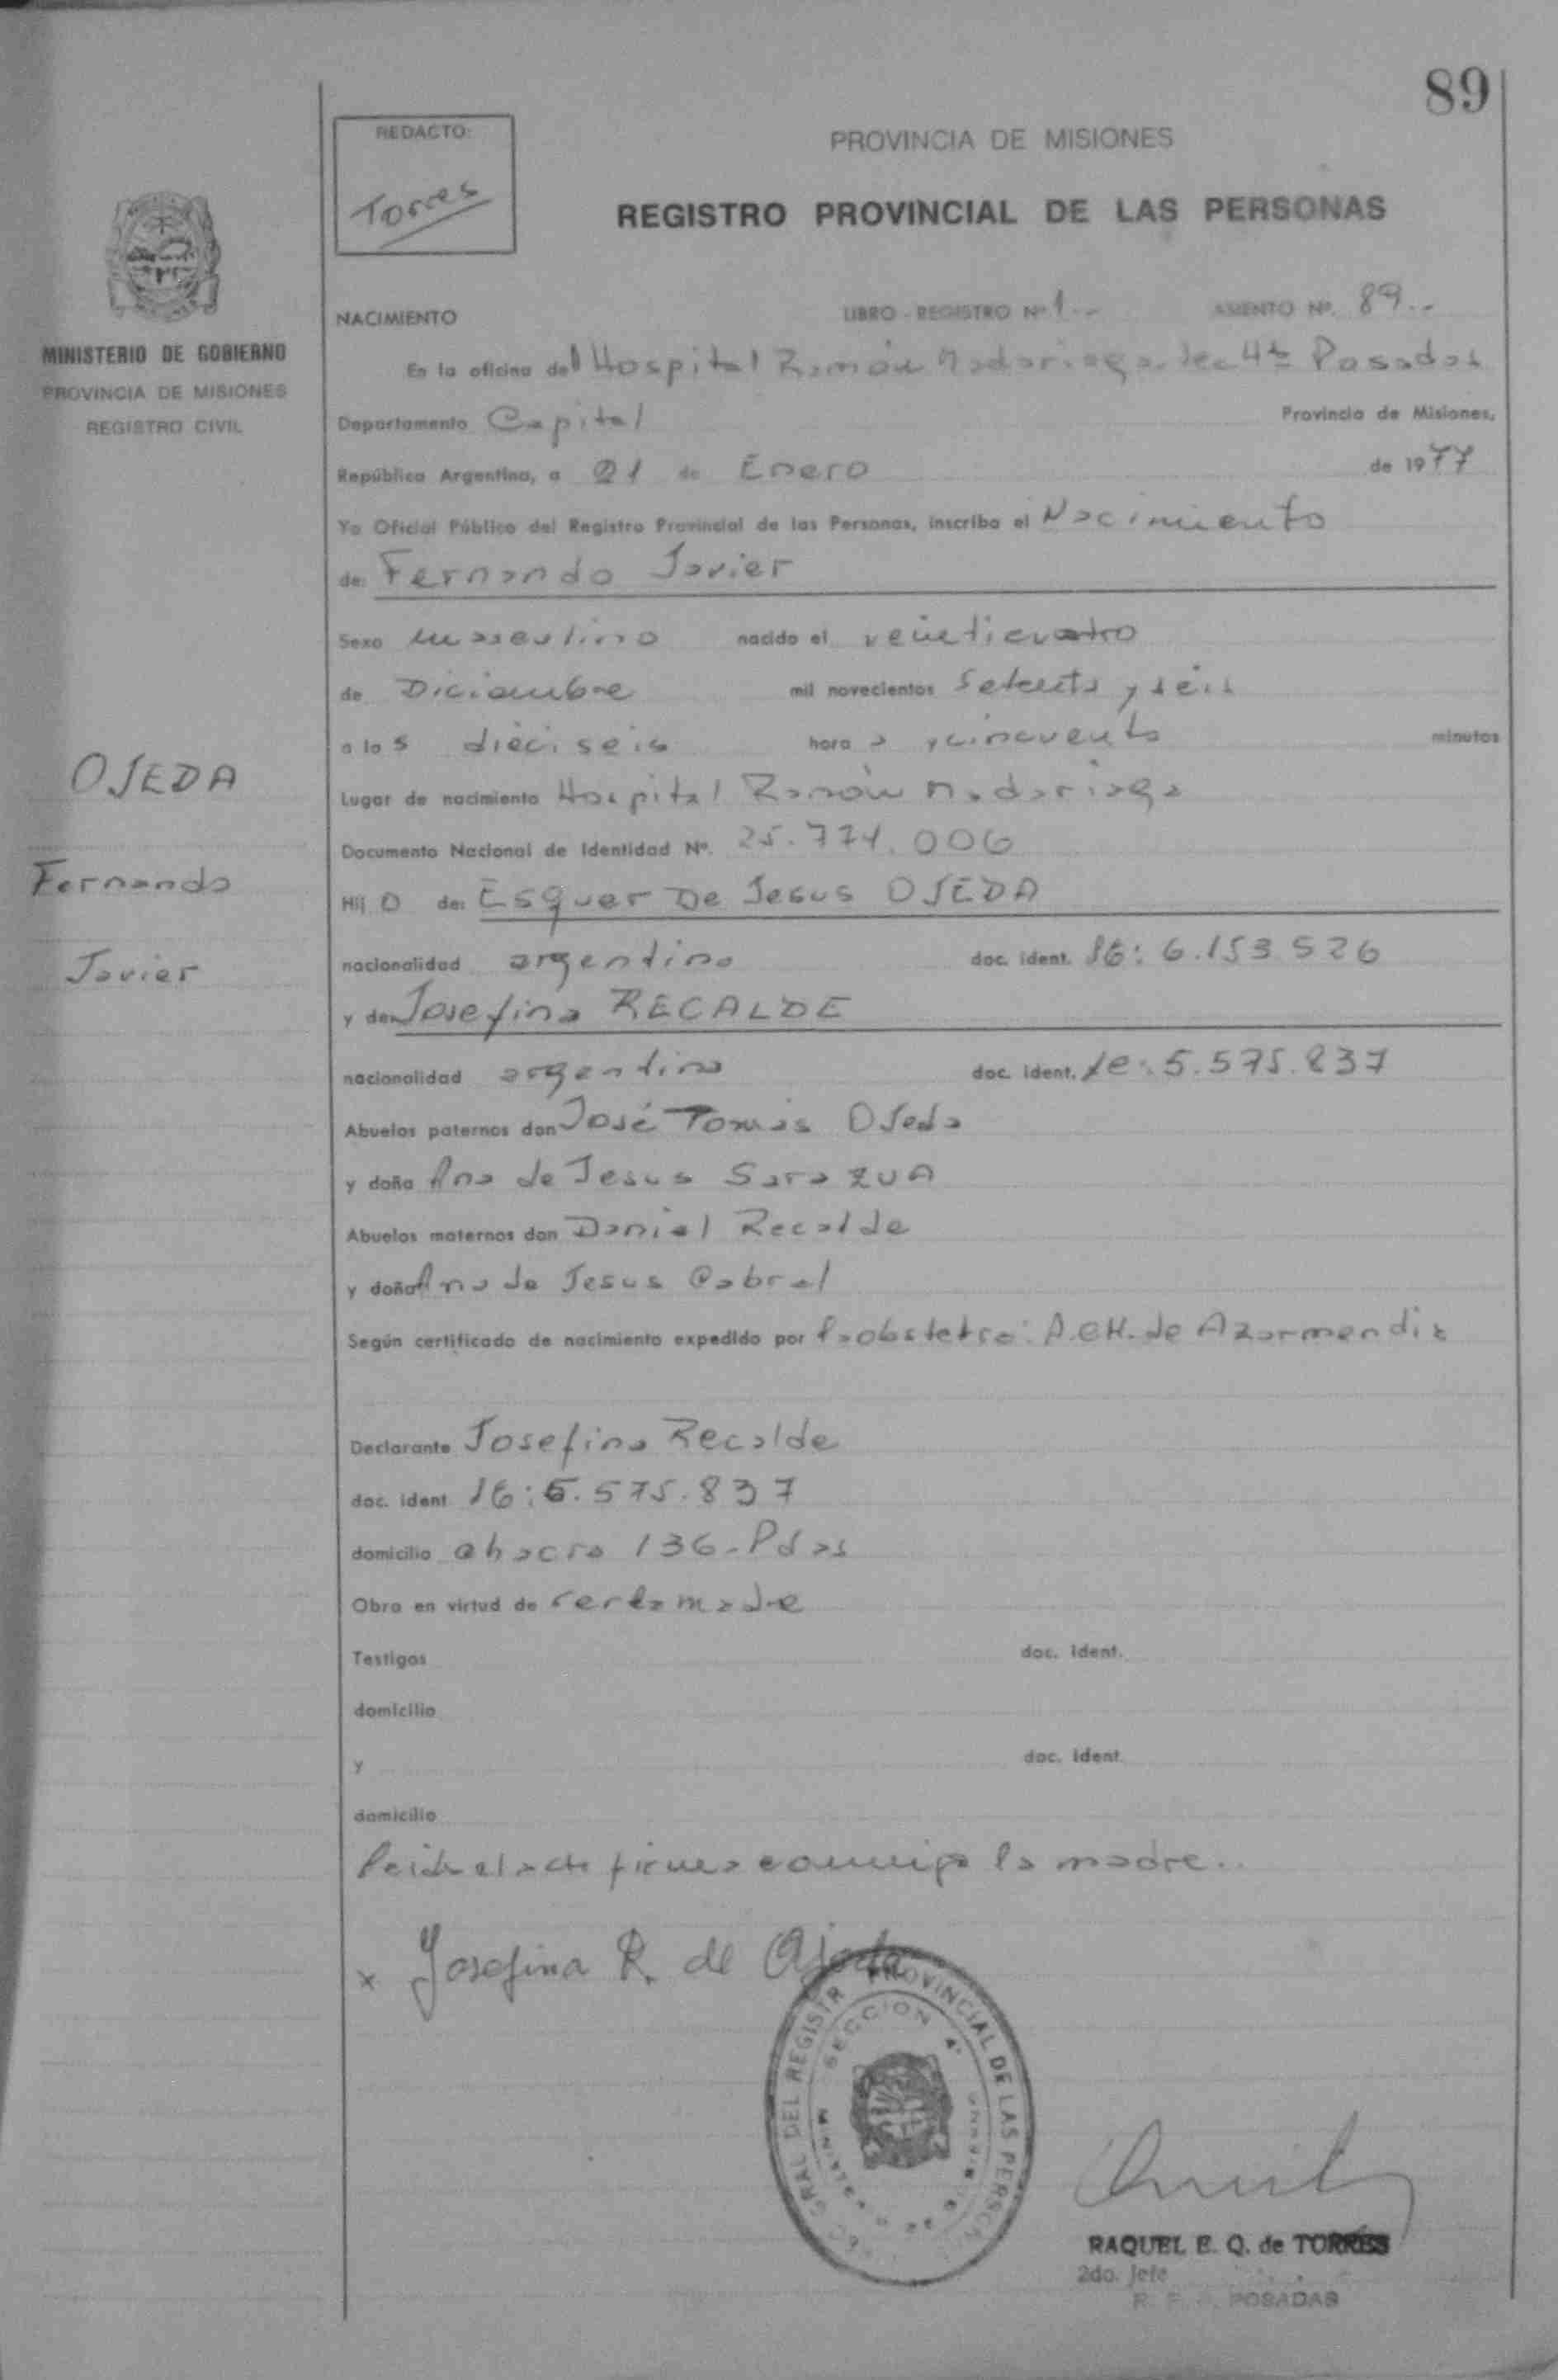 89
REDACTO:
Torres
PROVINCIA DE MISIONES
REGISTRO PROVINCIAL DE LAS PERSONAS
MINISTERIO DE GOBIERNO
PROVINCIA DE MISIONES
REGISTRO CIVIL
OJEDA
Fernando
Javier
NACIMIENTO LIBRO - REGISTRO Nº 1 -- ASIENTO Nº. 89 --
En la oficina del Hospital Ramón Madariaga Sec 4ta Posadas
Departamento Capital Provincia de Misiones,
República Argentina, a 21 de Enero de 1977
Yo Oficial Público del Registro Provincial de las Personas, inscribo el Nacimiento
de: Fernando Javier
Sexo masculino nacido el veinticuatro
de Diciembre mil novecientos setenta y seis
a las dieciseis hora s y cincuenta minutos
Lugar de nacimiento Hospital Ramón Madariaga
Documento Nacional de Identidad Nº. 25.774.006
Hij o de: Esquer De Jesus OJEDA
nacionalidad argentino doc. ident. 6.153.526
y de: Josefina RECALDE
nacionalidad argentina doc. ident. 5.575.837
Abuelos paternos don José Tomás Ojeda
y doña Ana de Jesus SarazUA
Abuelos maternos don Daniel Recalde
y doña Ana de Jesus Cabral
Según certificado de nacimiento expedido por la obstetra: A.CH. de Azarmendia
Declarante Josefina Recalde
doc. ident. 5.575.837
domicilio chacra 136 - Pdas
Obra en virtud de ser la madre
Testigos doc. ident.
domicilio
y doc. ident.
domicilio
Leida el acta firma conmigo la madre..
x Josefina R. de Ojeda
GRAL DEL REGISTR PROVINCIAL DE LAS PERSON
SECCION 4ª
RAQUEL E. Q. de TORRES
2do. Jefe
POSADAS